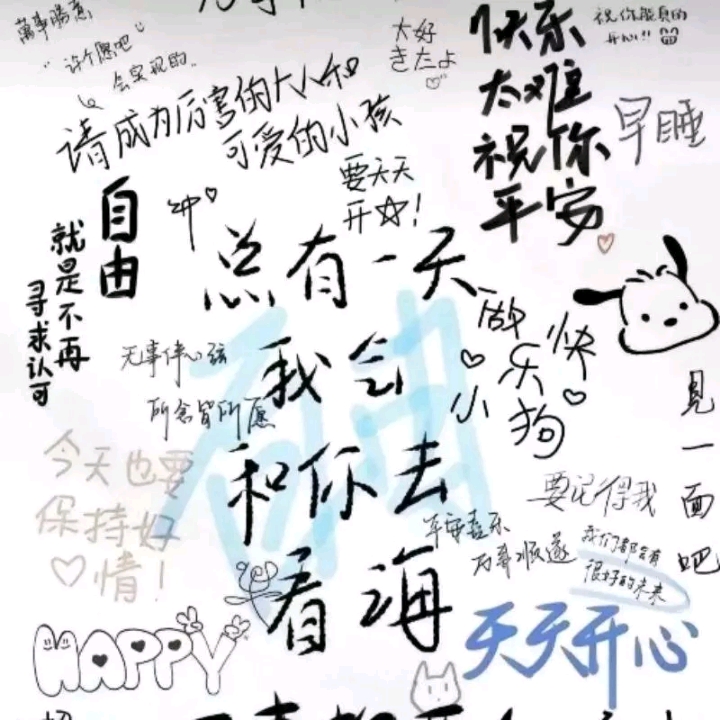 萬事勝意
许个愿吧
会实现的.
大好
きたよ
快乐
太难
祝你
平安
祝你能真的
开心!!
早睡
请成为厉害的大人和
可爱的小孩
要天天
开☆!
自由
就是不再
寻求认可
总有一天
我会
和你去
看海
做
快
乐
小
狗
无事绊心弦
所念皆所愿
今天也要
保持好
♡情!
見一面吧
要记得我
平安喜乐
万事顺遂
我们都会有
很好的未来
天天开心
HAPPY